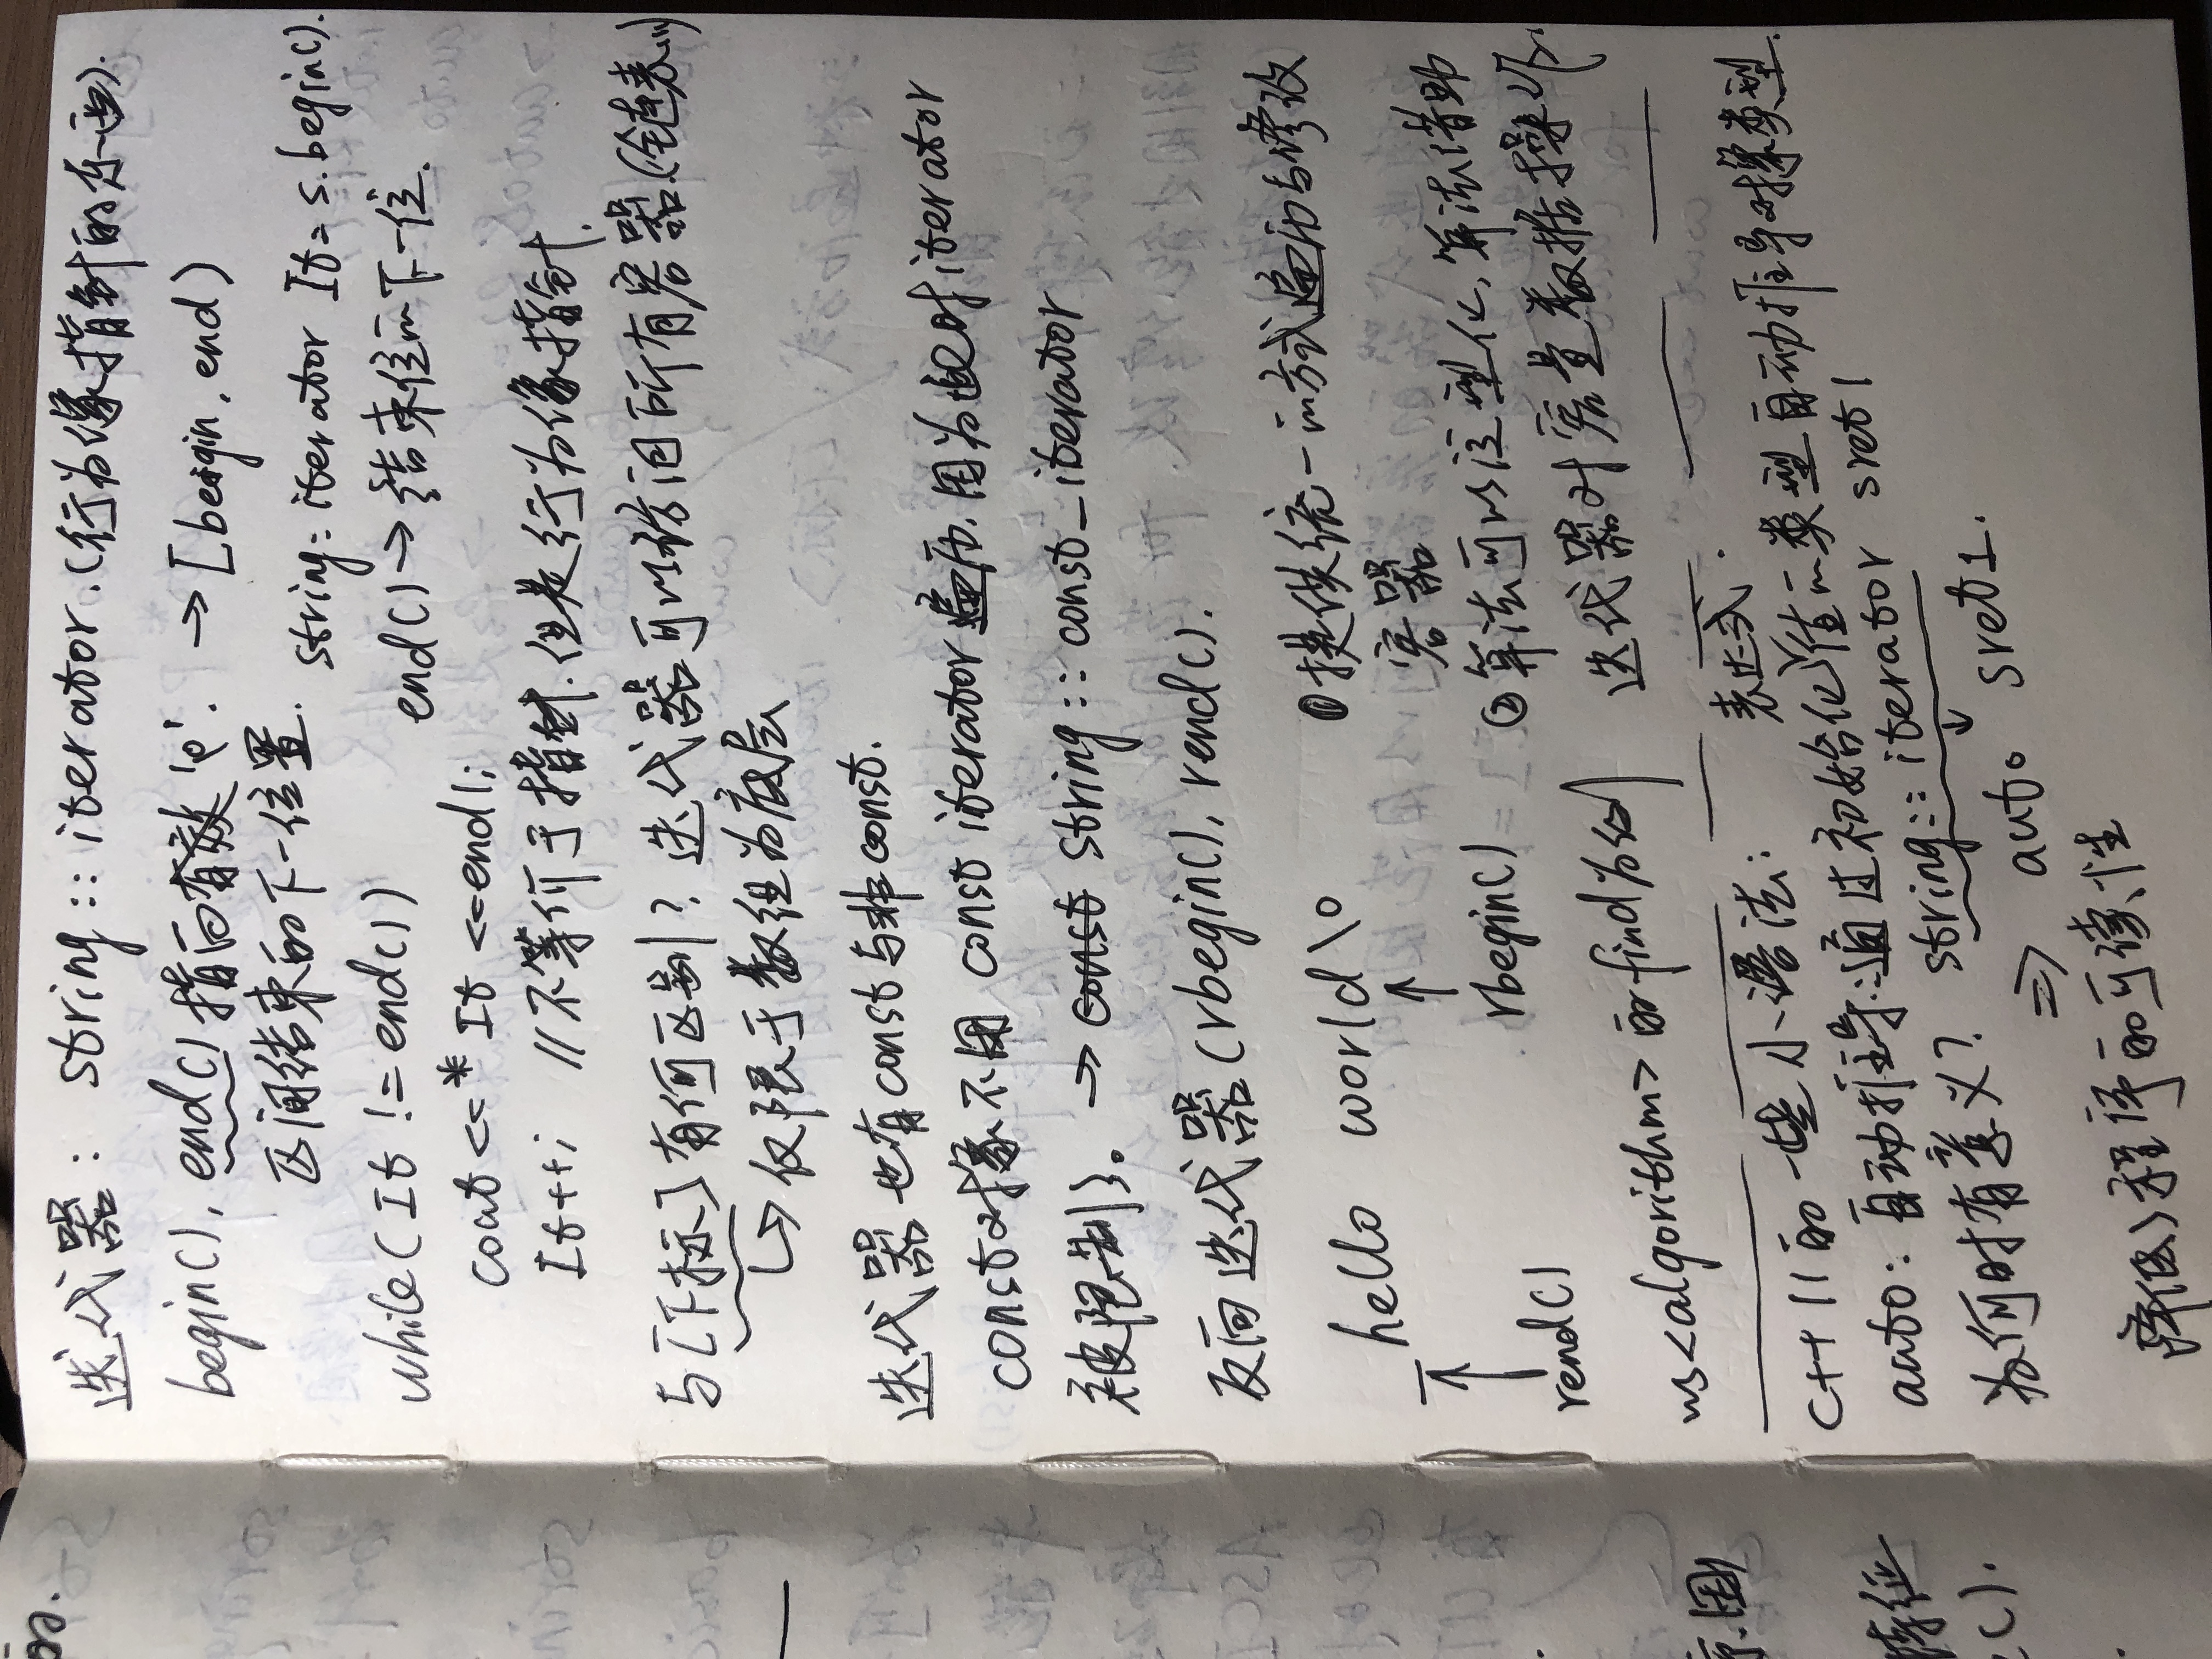 迭代器: string::iterator.(行为像指针的东西).
begin(), end()指向有效'\0'. → [begin, end)
区间结束的下一位置. string::iterator It = s.begin().
while(It != end()) end() → 结束位的下一位.
cout << *It << endl;
It++; //不等价于指针.但是行为像指针.
与[下标]有何区别? 迭代器可以访问所有容器.(链表...)
↳ 仅限于数组为底层
迭代器也有const与非const.
const对象不用 const iterator 遍历. 因为 iterator
被限制了。 → const string::const_iterator
反向迭代器 (rbegin(), rend().
hello world\0
↑ ↑
rend() rbegin()
①提供统一的方式遍历与修改
容器
②算法可以泛型化,算法借助
迭代器对容器数据操作.
<algorithm> 的find为例
C++11的一些小语法: 表达式.
auto: 自动推导.通过初始化值的类型自动推导对象类型.
为何时有意义? string::iterator sret1
⇒ auto sret1.
降低)程序的可读性